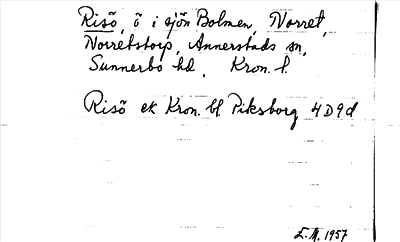 Risö, ö i sjön Bolmen, Norret,
Norretstorp, Annerstads sn,
Sunnerbo hd, Kron. l.
Risö ek Kron. bl Piksborg 4D9d
L.M. 1957